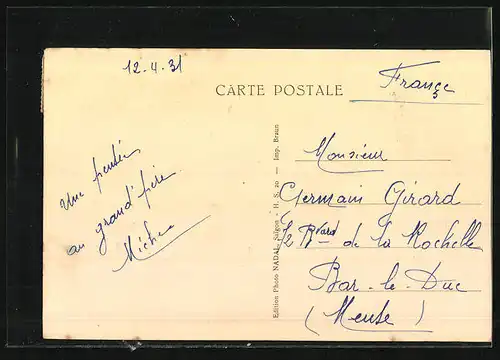 12.4.31
CARTE POSTALE
France
Une pensée
au grand'père
Michel
Edition Photo NADAL, Saïgon - H. S. 20 — Imp. Braun
Monsieur
Germain Girard
72 Bvard de la Rochelle
Bar-le-Duc
(Meuse)